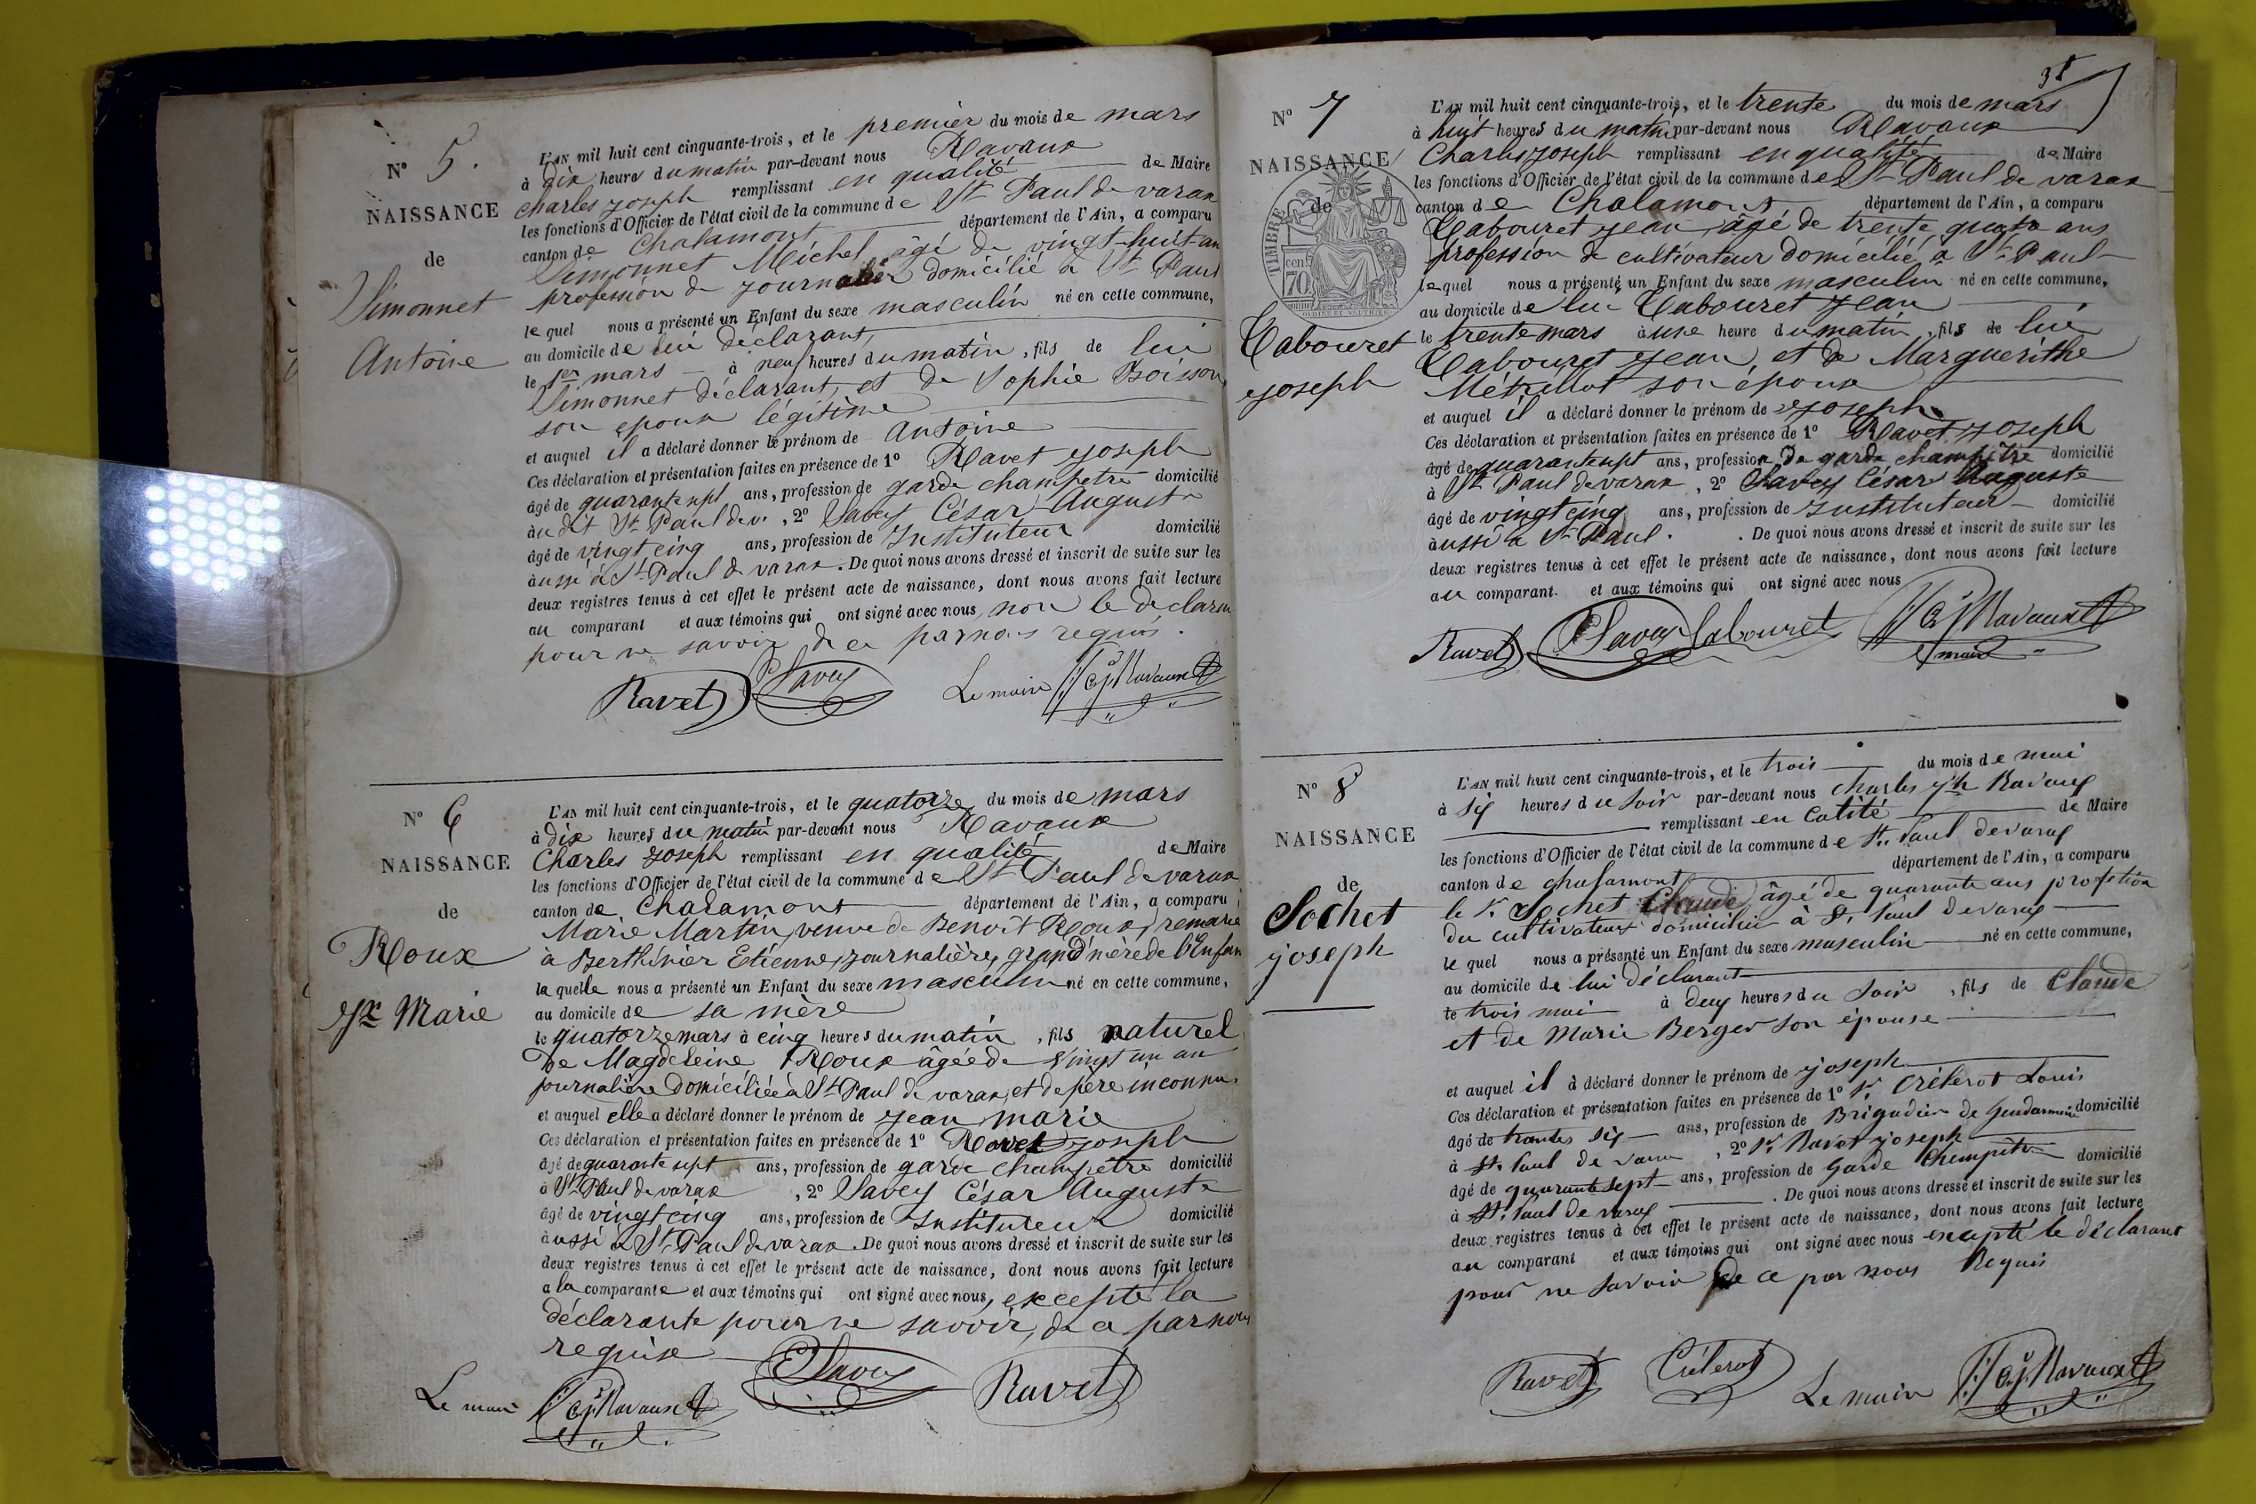 N° 5.
NAISSANCE
de
Simonnet
Antoine
L'AN mil huit cent cinquante-trois, et le premier du mois de mars
à dix heures du matin par-devant nous Ravaux
Charles joseph remplissant en qualité de Maire
les fonctions d'Officier de l'état civil de la commune de St Paul de varax
canton de Chalamont département de l'Ain, a comparu
Simonnet Michel âgé de vingt-huit an
profession de journalier domicilié à St Paul
lequel nous a présenté un Enfant du sexe masculin né en cette commune,
au domicile de lui déclarant,
le 1er mars à neuf heures du matin, fils de lui
Simonnet déclarant, et de Sophie Boisson
son epoux légitime
et auquel il a déclaré donner le prénom de Antoine
Ces déclaration et présentation faites en présence de 1° Ravet joseph
âgé de quarante sept ans, profession de garde champetre domicilié
au dit St Paul de v. , 2° Savey César Auguste
âgé de vingt cinq ans, profession de Instituteur domicilié
aussi à St Paul de varax. De quoi nous avons dressé et inscrit de suite sur les
deux registres tenus à cet effet le présent acte de naissance, dont nous avons fait lecture
au comparant et aux témoins qui ont signé avec nous, non le déclaran
pour ne savoir de ce par nous requis.
Ravet Savey Le maire C j Ravaux
N° 6
NAISSANCE
de
Roux
Jn Marie
L'AN mil huit cent cinquante-trois, et le quatorze du mois de mars
à dix heures du matin par-devant nous Ravaux
Charles joseph remplissant en qualité de Maire
les fonctions d'Officier de l'état civil de la commune de St Paul de varax
canton de Chalamont département de l'Ain, a comparu
Marie Martin, veuve de Benoit Roux, remariée
à Berthinier Etienne, journalière, grand'mère de l'Enfan
laquelle nous a présenté un Enfant du sexe masculin né en cette commune,
au domicile de sa mère
le quatorze mars à cinq heures du matin, fils naturel
De Magdeleine Roux âgée de vingt un an
journalière domiciliée à St Paul de varax, et de père inconnu.
et auquel elle a déclaré donner le prénom de jean marie
Ces déclaration et présentation faites en présence de 1° Ravet joseph
âgé de quarante sept ans, profession de garde champêtre domicilié
à St Paul de varax , 2° Savey César Auguste
âgé de vingt cinq ans, profession de Instituteur domicilié
aussi à St Paul de varax. De quoi nous avons dressé et inscrit de suite sur les
deux registres tenus à cet effet le présent acte de naissance, dont nous avons fait lecture
a la comparante et aux témoins qui ont signé avec nous, excepté la
déclarante pour ne savoir, de ce par nous
requise
Le maire C j Ravaux Savey Ravet
38
N° 7
NAISSANCE
de
TIMBRE
70 cent
Cabouret
joseph
L'AN mil huit cent cinquante-trois, et le trente du mois de mars
à huit heures du matin par-devant nous Ravaux
Charles joseph remplissant en qualité de Maire
les fonctions d'Officier de l'état civil de la commune de St Paul de varax
canton de Chalamont département de l'Ain, a comparu
Cabouret jean, âgé de trente quatre ans
profession de cultivateur domicilié à St Paul
lequel nous a présenté un Enfant du sexe masculin né en cette commune,
au domicile de lui Cabouret jean
le trente mars à une heure du matin, fils de lui
Cabouret jean et de Marguerithe
Métrillot son époux
et auquel il a déclaré donner le prénom de joseph
Ces déclaration et présentation faites en présence de 1° Ravet joseph
âgé de quarante sept ans, profession de garde champêtre domicilié
à St Paul de varax , 2° Savey César Auguste
âgé de vingt cinq ans, profession de Instituteur domicilié
aussi à St Paul. . De quoi nous avons dressé et inscrit de suite sur les
deux registres tenus à cet effet le présent acte de naissance, dont nous avons fait lecture
au comparant. et aux témoins qui ont signé avec nous
Ravet Savey Cabouret C j Ravaux
maire
N° 8
NAISSANCE
de
Sochet
joseph
L'AN mil huit cent cinquante-trois, et le trois du mois de mai
à six heures du soir par-devant nous Charles jh Ravaux
remplissant en calité de Maire
les fonctions d'Officier de l'état civil de la commune de St. Paul devarax
canton de chalamont département de l'Ain, a comparu
le Sr Sochet Claude âgé de quarante ans profetion
du cultivateur domicilier à St. Paul devarax
lequel nous a présenté un Enfant du sexe masculin né en cette commune,
au domicile de lui déclarant
le trois mai à deux heures du soir, fils de Claude
et de Marie Berger son épouse
et auquel il a déclaré donner le prénom de joseph
Ces déclaration et présentation faites en présence de 1° Sr Créterot Louis
âgé de trentes six ans, profession de Brigadier de Gendarmerie domicilié
à St. Paul de varax , 2° Sr Ravet joseph
âgé de quarante sept ans, profession de Garde Chempêtre domicilié
à St. Paul de varax . De quoi nous avons dressé et inscrit de suite sur les
deux registres tenus à cet effet le présent acte de naissance, dont nous avons fait lecture
au comparant et aux témoins qui ont signé avec nous excepté le déclarant
pour ne savoir de ce par nous Requis
Ravet Créterot Le maire C j Ravaux